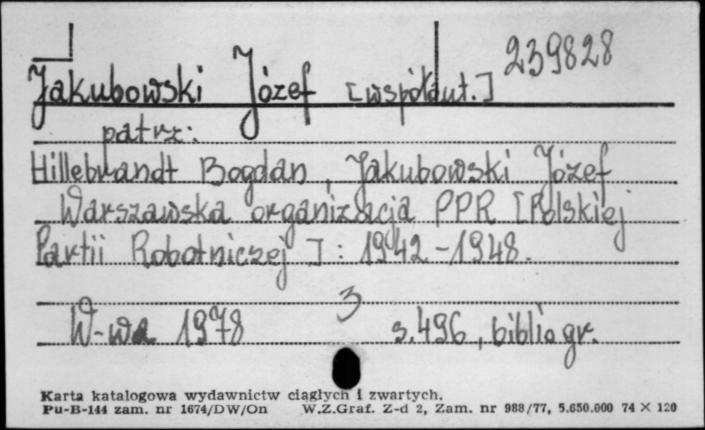 Jakubowski Józef [współaut.] 239828
patrz:
Hillebrandt Bogdan, Jakubowski Józef
Warszawska organizacja PPR [Polskiej
Partii Robotniczej] : 1942-1948.
3
W-wa 1978 s. 496, bibliogr.
Karta katalogowa wydawnictw ciągłych i zwartych.
Pu-B-144 zam. nr 1674/DW/On W.Z.Graf. Z-d 2, Zam. nr 988/77, 5.650.000 74 × 120